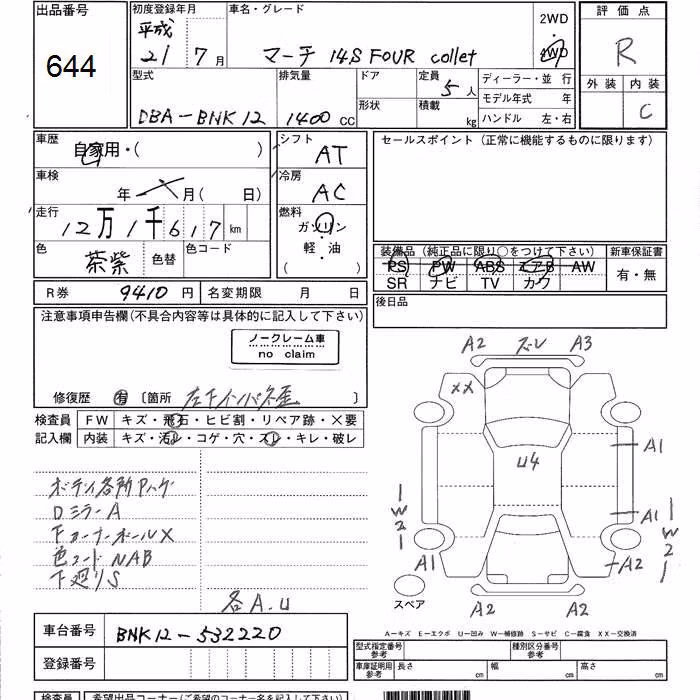 出品番号
644
初度登録年月
平成
21 7月
車名・グレード
マーチ 14S FOUR collet
2WD
4WD
評価点
R
外装 内装
C
型式
DBA-BNK12
排気量
1400 CC
ドア
形状
定員
5人
積載
kg
ディーラー・並行
モデル年式 年
ハンドル 左・右
車歴
自家用・( )
車検
年 月( 日)
走行
12万1千617km
色
茶紫
色替
色コード
R券 9410円
名変期限 月 日
シフト
AT
冷房
AC
燃料
ガソリン
軽・油
( )
セールスポイント(正常に機能するものに限ります)
装備品(純正品に限り○をつけて下さい)
PS PW ABS エアB AW
SR ナビ TV カワ
新車保証書
有・無
後日品
注意事項申告欄(不具合内容等は具体的に記入して下さい)
ノークレーム車
no claim
修復歴 有 〔箇所 左F インパネ歪 〕
検査員
記入欄
FW キズ・飛石・ヒビ割・リペア跡・×要
内装 キズ・汚れ・コゲ・穴・スレ・キレ・破レ
ボディ各所Pハゲ
DミラーA
FコーナーポールX
色コードNAB
下廻りS
各A.U
A2 ズレ A3
XX
U4
A1
A1
A2
W2
W2
A1
A2 A2
スペア
A-キズ E-エクボ U-凹み W-補修跡 S-サビ C-腐食 XX-交換済
車台番号
BNK12-532220
登録番号
型式指定番号
参考
種別区分番号
参考
車庫証明用
参考
長さ cm
幅 cm
高さ cm
検査員
希望出品コーナー(ご希望のコーナー名を記入して下さい)